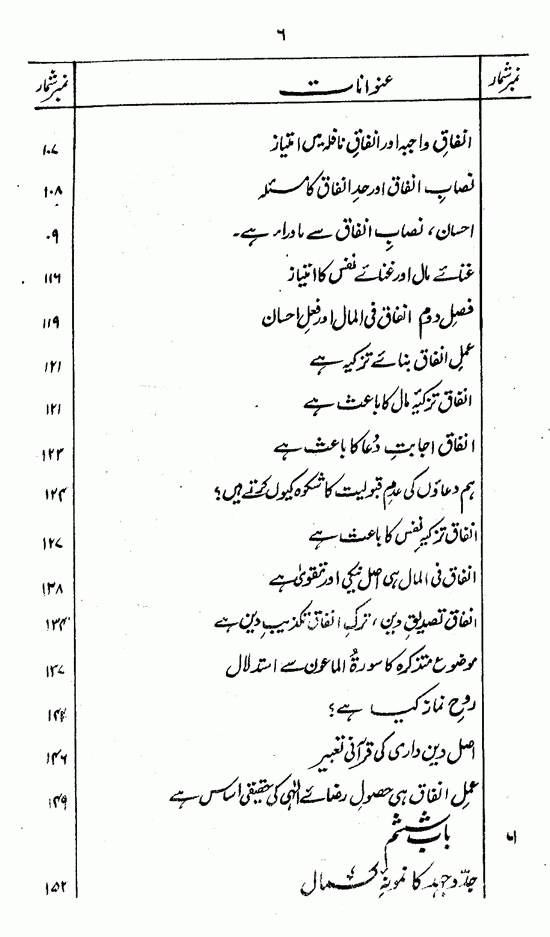 ۶
نمبر شمار عنوانات نمبر شمار
انفاقِ واجبہ اور انفاقِ نافلہ میں امتیاز ۱۰۷
نصابِ انفاق اور حدِ انفاق کا مسئلہ ۱۰۸
احسان، نصابِ انفاق سے ماوراء ہے۔ ۰۹
غنائے مال اور غنائے نفس کا امتیاز ۱۱۶
فصل دوم انفاق فی المال اور فعلِ احسان ۱۱۹
عملِ انفاق بنائے تزکیہ ہے ۱۲۱
انفاق تزکیۂ مال کا باعث ہے ۱۲۱
انفاق اجابتِ دُعا کا باعث ہے ۱۲۳
ہم دعاؤں کی عدمِ قبولیت کا شکوہ کیوں کرتے ہیں؟ ۱۲۴
انفاق تزکیۂ نفس کا باعث ہے ۱۲۷
انفاق فی المال ہی اصل نیکی اور تقویٰ ہے ۱۳۸
انفاق تصدیقِ دین، ترکِ انفاق تکذیبِ دین ہے ۱۳۴
موضوع متذکرہ کا سورۃُ الماعون سے استدلال ۱۳۷
روحِ نماز کیا ہے؟
اصل دین داری کی قرآنی تعبیر ۱۴۶
عملِ انفاق ہی حصولِ رضائے الٰہی کی حقیقی اساس ہے ۱۴۹
۶ باب ششم
جدّ و جہد کا نمونۂ کمال ۱۵۲